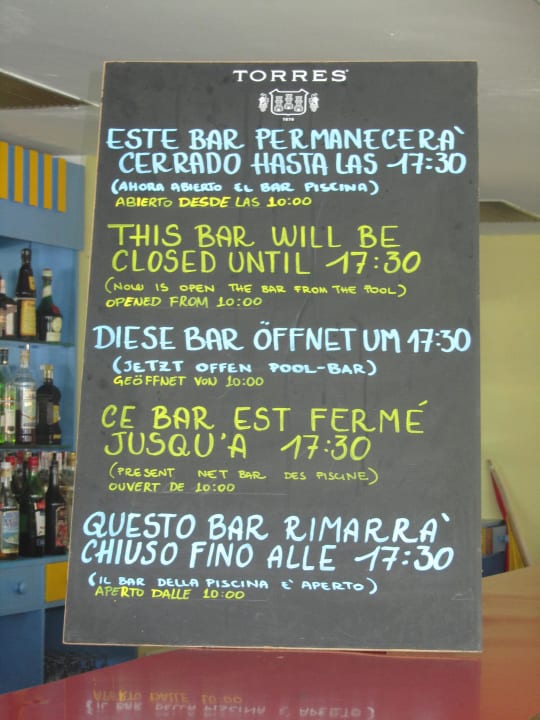 TORRES
1870
ESTE BAR PERMANECERA`
CERRADO HASTA LAS 17:30
(AHORA ABIERTO EL BAR PISCINA)
ABIERTO DESDE LAS 10:00
THIS BAR WILL BE
CLOSED UNTIL 17:30
(NOW IS OPEN THE BAR FROM THE POOL)
OPENED FROM 10:00
DIESE BAR ÖFFNET UM 17:30
(JETZT OFFEN POOL-BAR)
GEÖFFNET VON 10:00
CE BAR EST FERMÉ
JUSQU'A 17:30
(PRESENT NET BAR DES PISCINE)
OUVERT DE 10:00
QUESTO BAR RIMARRA`
CHIUSO FINO ALLE 17:30
(IL BAR DELLA PISCINA E' APERTO)
APERTO DALLE 10:00